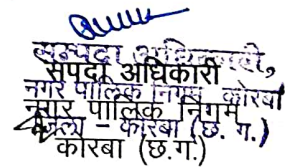 सम्पदा अधिकारी,
संपदा अधिकारी
नगर पालिक निगम कोरबा
नगर पालिक निगम
जिला - कोरबा (छ. ग.)
कोरबा (छ.ग.)